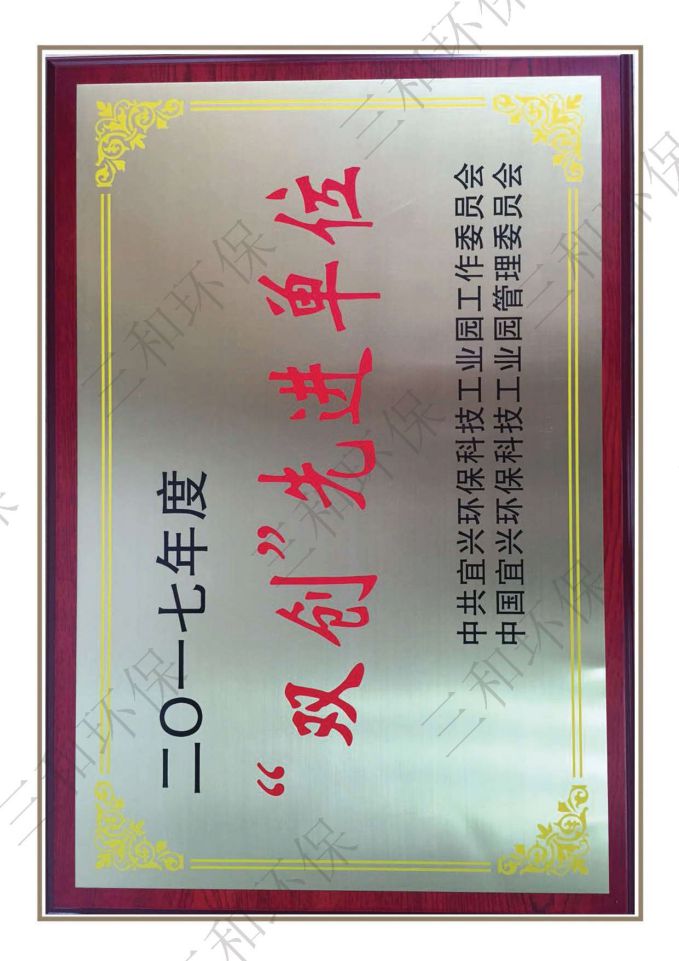 二〇一七年度
“双创”先进单位
中共宜兴环保科技工业园工作委员会
中国宜兴环保科技工业园管理委员会
三和环保
三和环保
三和环保
三和环保
三和环保
三和环保
三和环保
三和环保